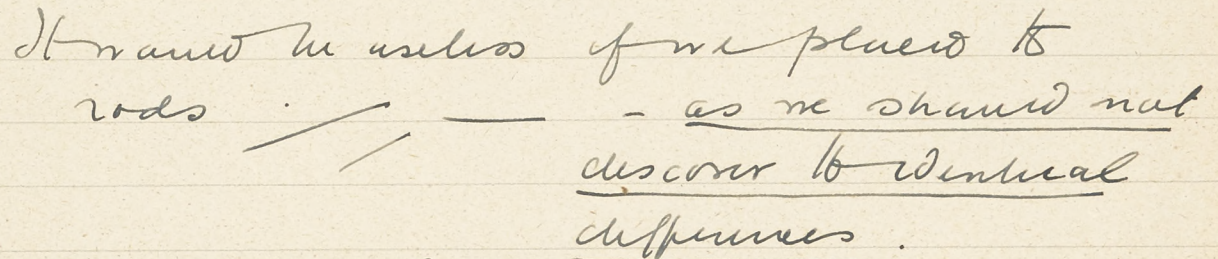 It would be useless if we placed the
rods - as we should not
discover the identical
differences.